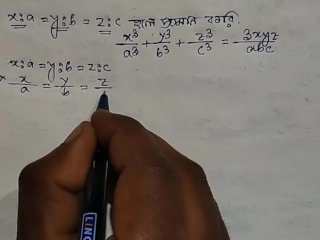 x:a = y:b = z:c হলে প্রমাণ করি
x³/a³ + y³/b³ + z³/c³ = 3xyz/abc
x:a = y:b = z:c
x/a = y/b = z/
LINC